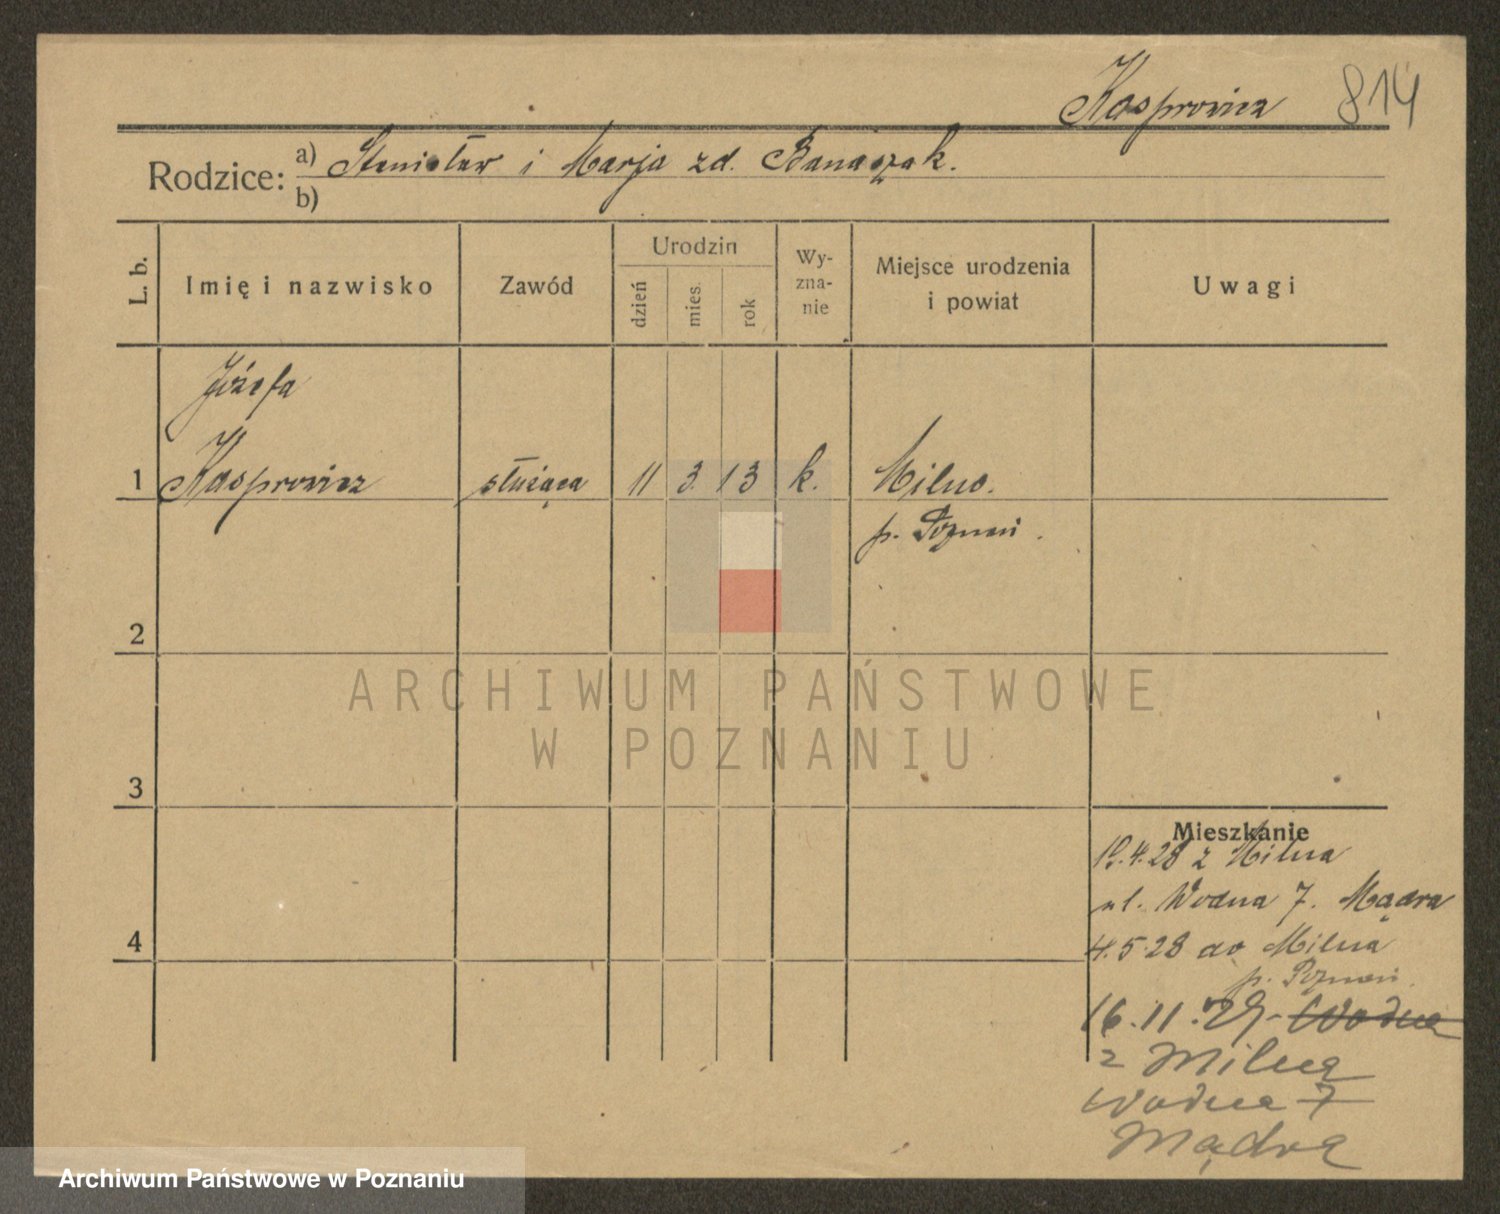 Kasprowicz 814
Rodzice: a) Stanisław i Marja zd. Banaszak.
b)
L. b. Imię i nazwisko Zawód Urodzin dzień mies. rok Wyznanie Miejsce urodzenia i powiat Uwagi
Józefa
1 Kasprowicz służąca 11 3. 13 k. Milno.
p. Poznań.
2
ARCHIWUM PAŃSTWOWE
W POZNANIU
3
Mieszkanie
19.4.28 z Milna
ul. Wodna 7. Mądra
4
4.5.28 do Milna
p. Poznań.
16.11.29 - Wodna
z Milna
Wodna 7
Mądra
Archiwum Państwowe w Poznaniu